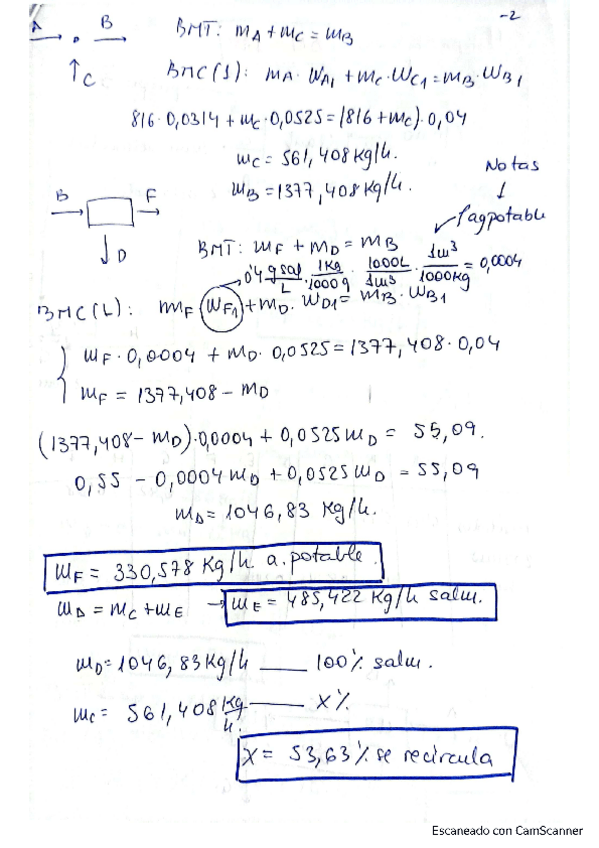 -2
A B BMT: mA + mC = mB
↑C BMC(1): mA · WA1 + mC · WC1 = mB · WB1
816 · 0,0314 + mC · 0,0525 = (816 + mC) · 0,04
mC = 561,408 Kg/h.
mB = 1377,408 Kg/h.
Notas
↓
ρagpotable
B F
↓D
BMT: mF + mD = mB
0'4 g sal/L · 1Kg/1000g · 1000L/1m³ · 1m³/1000Kg = 0,0004
BMC(L): mF · WF1 + mD · WD1 = mB · WB1
mF · 0,0004 + mD · 0,0525 = 1377,408 · 0,04
mF = 1377,408 - mD
(1377,408 - mD) · 0,0004 + 0,0525 mD = 55,09.
0,55 - 0,0004 mD + 0,0525 mD = 55,09
mD = 1046,83 Kg/h.
mF = 330,578 Kg/h a. potable.
mD = mC + mE → mE = 485,422 Kg/h salm.
mD = 1046,83 Kg/h ___ 100% salm.
mC = 561,408 Kg/h. ___ X%
X = 53,63% se recircula
Escaneado con CamScanner